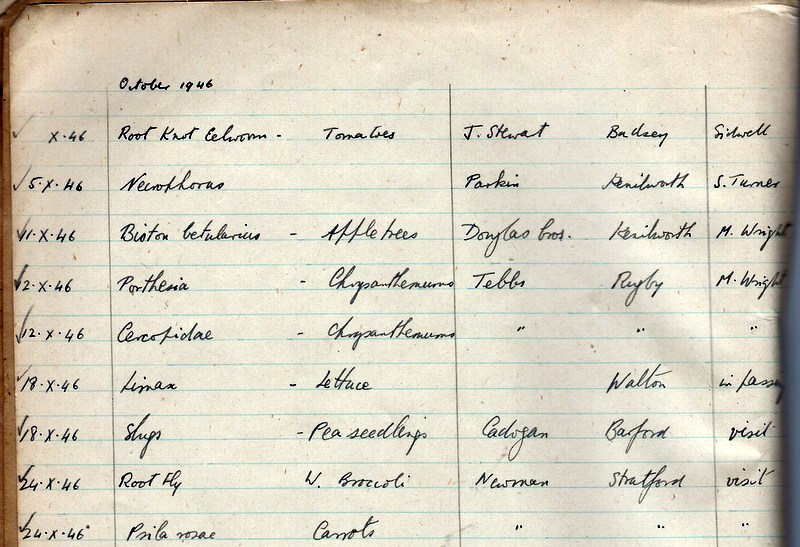 October 1946
X·46 Root Knot Eelworm - Tomatoes J. Stewat Badsey Sidwell
5·X·46 Necrophorus Parkin Kenilworth S. Turner
11·X·46 Biston betularius - Apple trees Douglas bros. Kenilworth M. Wright
12·X·46 Porthesia - Chrysanthemums Tebbs Rugby M. Wright
12·X·46 Cercopidae - Chrysanthemums " " "
18·X·46 Limax - Lettuce Walton in passing
18·X·46 Slugs - Pea seedlings Cadogan Barford visit
24·X·46 Root Fly W. Broccoli Newman Stratford visit
24·X·46 Psila rosae Carrots " " "